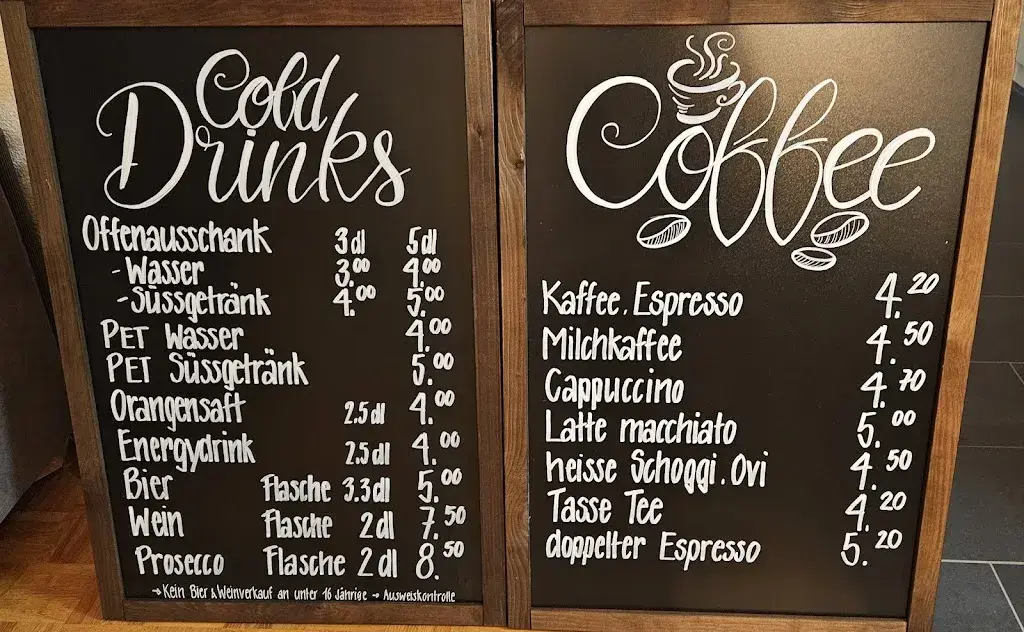 Cold
Drinks
Offenausschank 3dl 5dl
- Wasser 3.00 4.00
- Süssgetränk 4.00 5.00
PET Wasser 4.00
PET Süssgetränk 5.00
Orangensaft 2.5dl 4.00
Energydrink 2.5dl 4.00
Bier Flasche 3.3dl 5.00
Wein Flasche 2dl 7.50
Prosecco Flasche 2dl 8.50
→ Kein Bier & Weinverkauf an unter 16 Jährige → Ausweiskontrolle
Coffee
Kaffee, Espresso 4.20
Milchkaffee 4.50
Cappuccino 4.70
Latte macchiato 5.00
heisse Schoggi, Ovi 4.50
Tasse Tee 4.20
doppelter Espresso 5.20